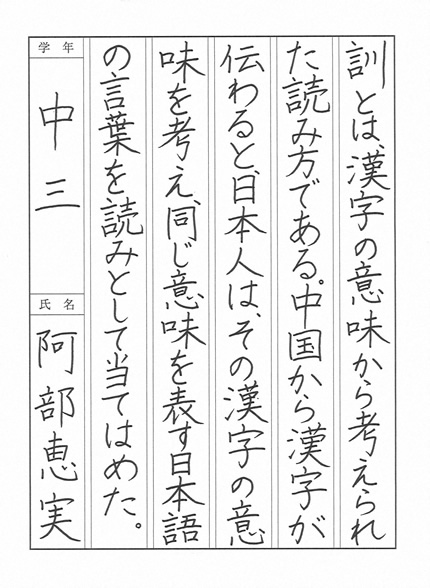 訓とは、漢字の意味から考えられ
た読み方である。中国から漢字が
伝わると、日本人は、その漢字の意
味を考え、同じ意味を表す日本語
の言葉を読みとして当てはめた。
学年
中三
氏名
阿部恵実